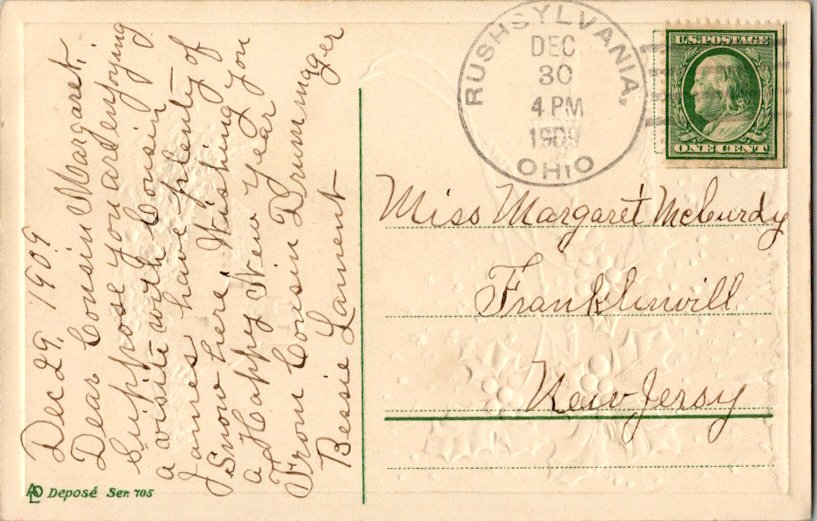 Dec 29, 1909
Dear Cousin Margaret.
Suppose you are enjoying
a visite with Cousin
James have plenty of
Snow here, Wishing you
a Happy New Year
From Cousin Drummager
Bessie Lament
RUSHSYLVANIA,
DEC
30
4 PM
1909
OHIO
U.S. POSTAGE
ONE CENT
Miss Margaret McCurdy
Franklinvill
New Jersy
Deposé Ser. 705